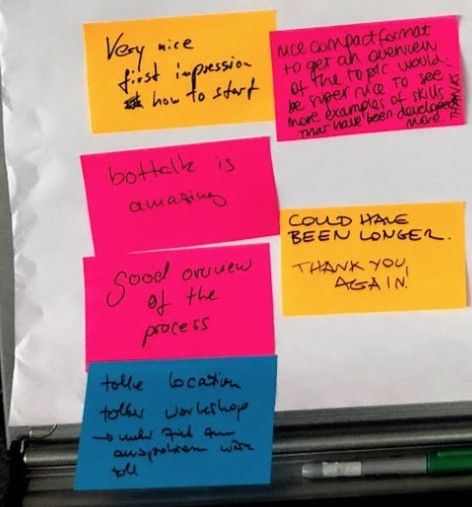 Very nice
first impression
how to start
nice compact format
to get an overview
of the topic would
be super nice to see
more examples of skills
that have been developed
more. THANKS
bottalk is
amazing
COULD HAVE
BEEN LONGER.
THANK YOU,
AGAIN!
Good overview
of the
process
tolle location
toller workshop
→ mehr Zeit zum
ausprobieren wäre
toll